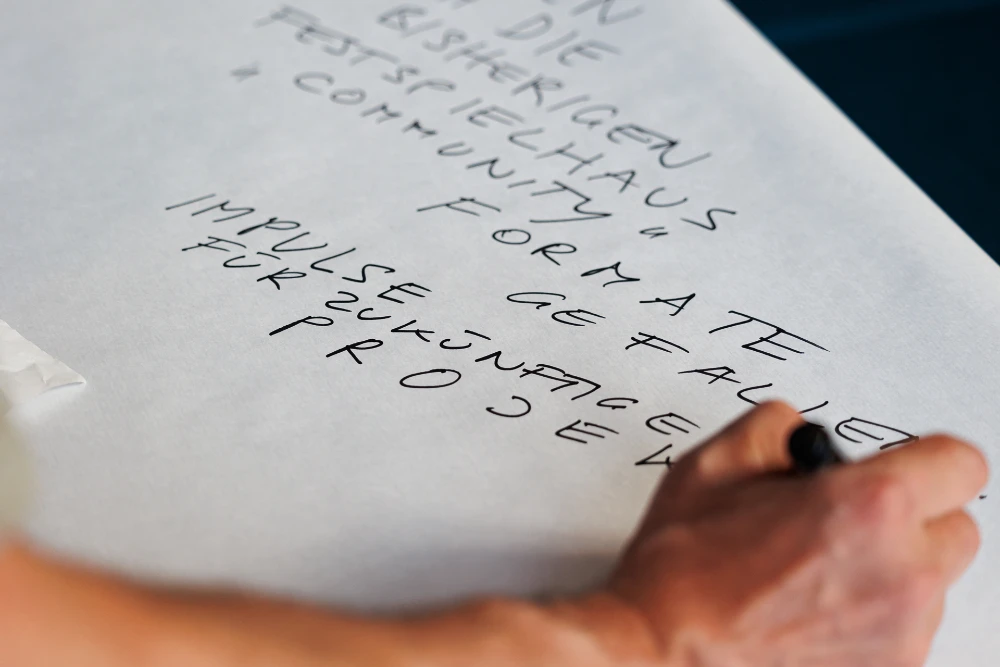 DIE
BISHERIGEN
FESTSPIELHAUS
"COMMUNITY"
FORMATE
GEFALLEN
IMPULSE
FÜR ZUKÜNFTIGE
PROJEK